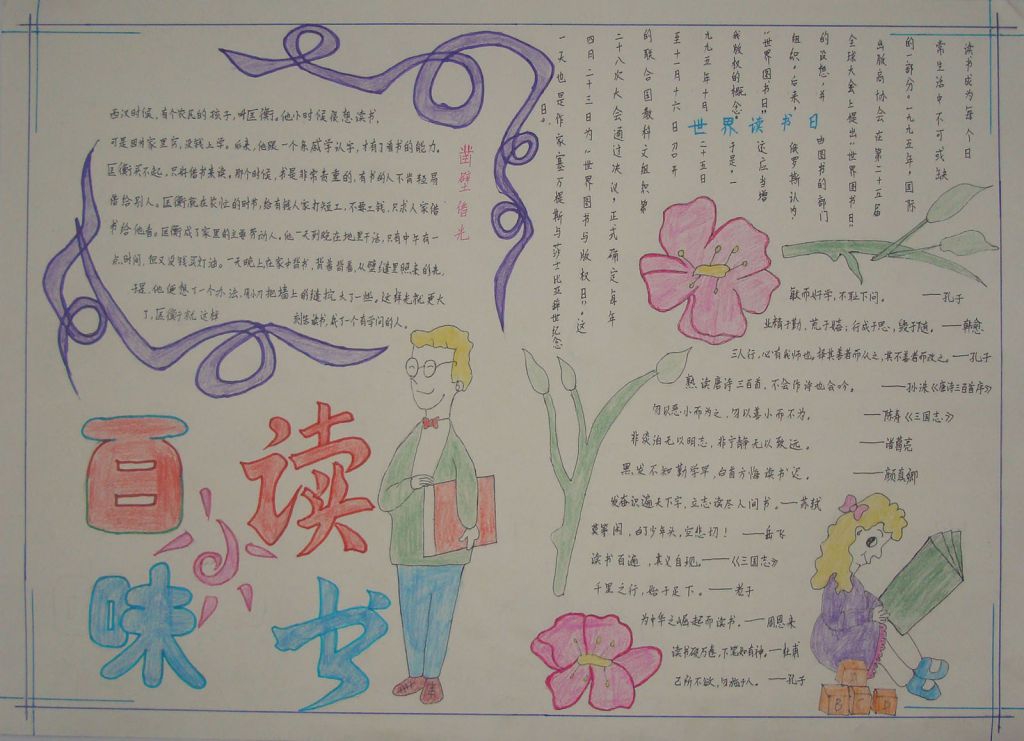 西汉时候,有个农民的孩子,叫匡衡。他小时候很想读书,
可是因为家里穷,没钱上学。后来,他跟一个亲戚学认字,才有了看书的能力。
匡衡买不起,只好借书来读。那个时候,书是非常贵重的,有书的人不肯轻易
借给别人。匡衡就在农忙的时节,给有钱人家打短工,不要工钱,只求人家借
书给他看。匡衡成了家里的主要劳动人。他一天到晚在地里干活,只有中午有一
点时间,但又没钱买灯油。一天晚上在家中背书,背着背着,从壁缝里照来的光,
于是,他便想了一个办法,用小刀把墙上的缝挖大了一些,这样光就更大
了,匡衡就这样 刻苦读书,成了一个有学问的人。
凿壁借光
世界读书日
读书成为每个日
常生活中不可或缺
的一部分。一九九五年,国际
出版商协会在第二十五届
全球大会上提出"世界图书日"
的设想,并 由图书的部门
组织,后来, 俄罗斯认为,
"世界图书日" 还应当增
我版权的概念。 于是,一
九九五年十月 二十五日
至十一月十六 日召开
的联合国教科文组织第
二十八次大会通过决议,正式确定每年
四月二十三日为"世界图书与版权日"。这
一天也是作家塞万提斯与莎士比亚辞世纪念
日。
敏而好学,不耻下问。——孔子
业精于勤,荒于嬉;行成于思,毁于随。——韩愈
三人行,必有我师也。择其善者而从之,其不善者而改之。——孔子
熟读唐诗三百首,不会作诗也会吟。——孙洙《唐诗三百首序》
勿以恶小而为之,勿以善小而不为。——陈寿《三国志》
非淡泊无以明志,非宁静无以致远。——诸葛亮
黑发不知勤学早,白首方悔读书迟。——颜真卿
发奋识遍天下字,立志读尽人间书。——苏轼
莫等闲,白了少年头,空悲切!——岳飞
读书百遍,其义自现。——《三国志》
千里之行,始于足下。——老子
为中华之崛起而读书。——周恩来
读书破万卷,下笔如有神。——杜甫
己所不欲,勿施于人。——孔子
百 读
小
味 书
A
B C D